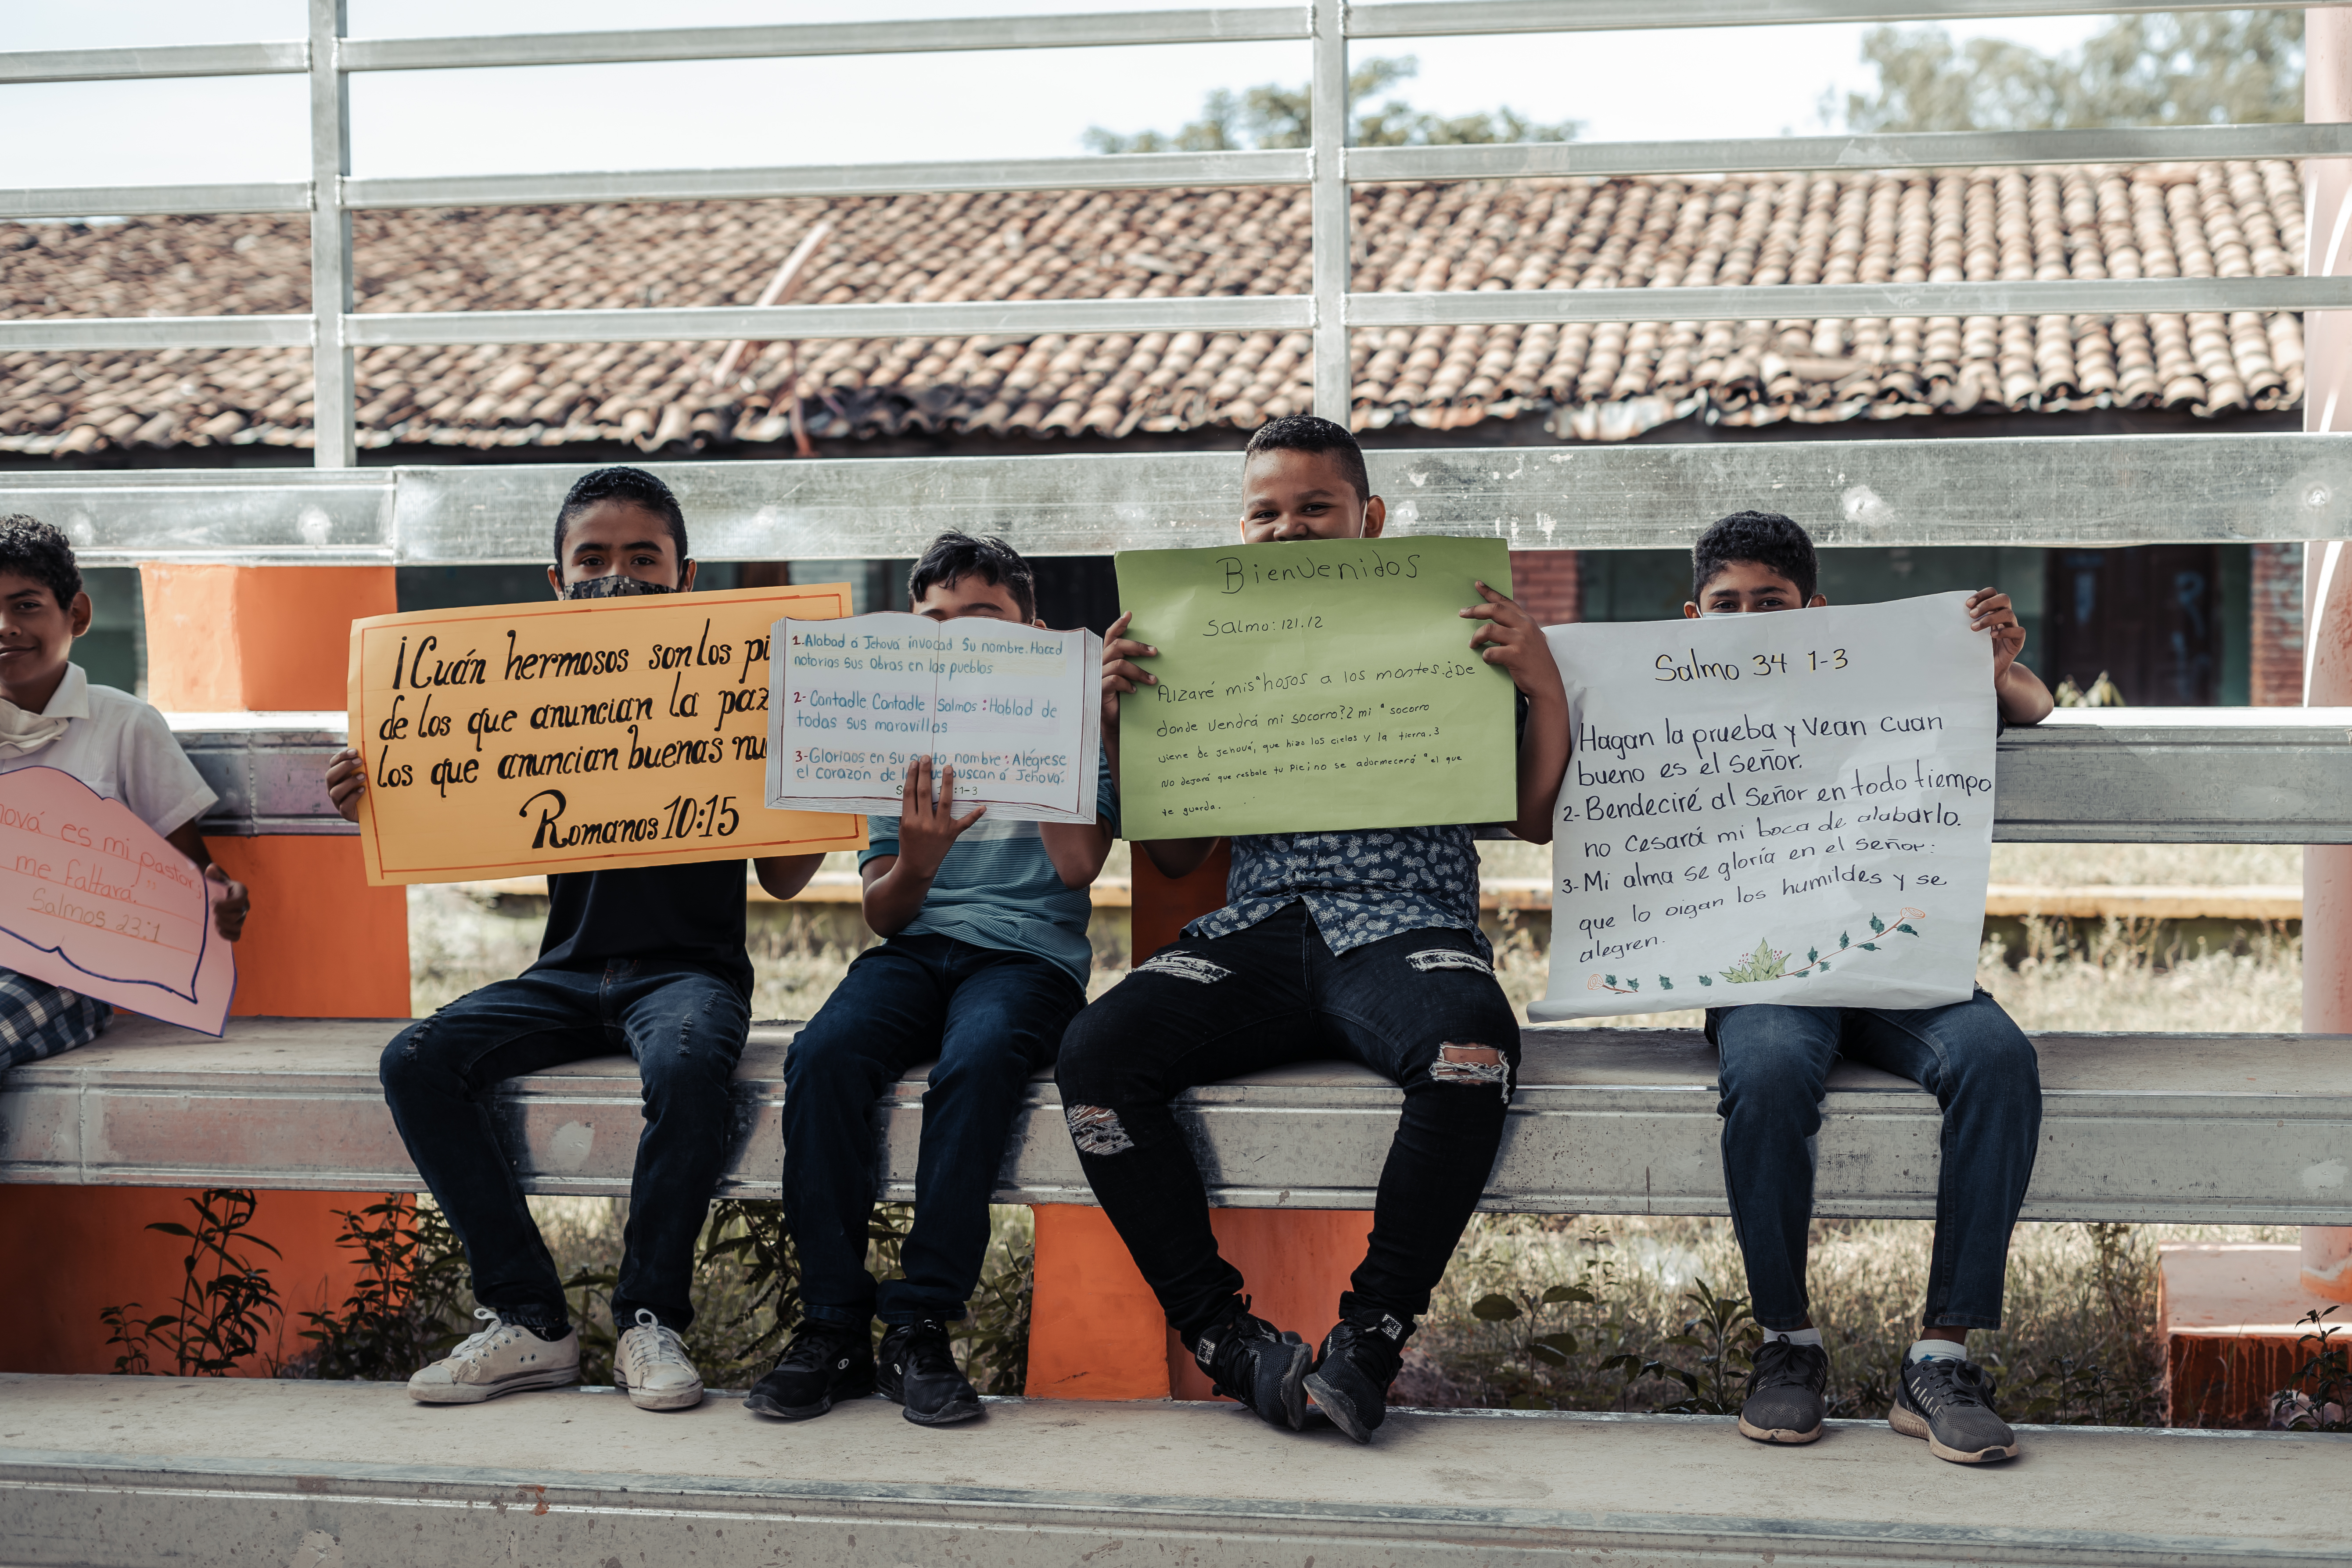 ová es mi pastor,
me faltará."
Salmos 23:1
¡Cuán hermosos son los pi
de los que anuncian la paz
los que anuncian buenas nu
Romanos 10:15
1. Alabad á Jehová invocad Su nombre. Haced
notorias sus obras en los pueblos
2- Cantadle Cantadle Salmos: Hablad de
todas sus maravillas
3- Gloriaos en su santo nombre: Alégrese
el corazón de buscan á Jehová.
:1-3
Bienvenidos
Salmo: 121.12
Alzaré mis "hojos a los montes. ¿De
donde vendrá mi socorro? 2 mi " socorro
viene de Jehová, que hizo los cielos y la tierra. 3
No dejará que resbale tu Pie; no se adormecerá "el que
te guarda.
Salmo 34 1-3
Hagan la prueba y Vean cuan
bueno es el Señor.
2- Bendeciré al Señor en todo tiempo
no Cesará mi boca de alabarlo.
3- Mi alma se gloría en el Señor:
que lo oigan los humildes y se
alegren.